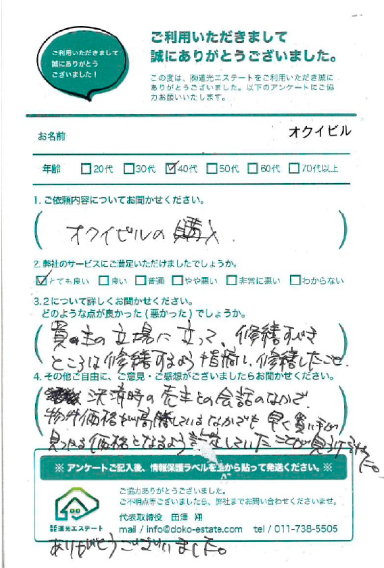 ご利用いただきまして
誠にありがとう
ございました！
ご利用いただきまして
誠にありがとうございました。
この度は、㈱道光エステートをご利用いただき誠に
ありがとうございました。以下のアンケートにご協
力お願いいたします。
お名前
オクイビル
年齢 □20代 □30代 ☑40代 □50代 □60代 □70代以上
1.ご依頼内容についてお聞かせください。
オクイビルの購入.
2.弊社のサービスにご満足いただけましたでしょうか。
☑とても良い □良い □普通 □やや悪い □非常に悪い □わからない
3.2について詳しくお聞かせください。
どのような点が良かった(悪かった)でしょうか。
買い主の立場に立って、修繕すべき
ところは修繕するよう指摘し、修繕したこと。
4.その他ご自由に、ご意見・ご感想がございましたらお聞かせください。
決済時の売主との会話のなかで
物件価格が高騰しているなかでも早く買い手が
見つかる価格となるよう していたことが見うけられました。
※ アンケートご記入後、情報保護ラベルを上から貼って発送ください。※
ご協力ありがとうございました。
ご不明点等ございましたら、弊社までお問い合わせくださいませ。
株式会社 道光エステート
代表取締役 田澤 翔
mail / info@doko-estate.com tel / 011-738-5505
ありがとうございました。